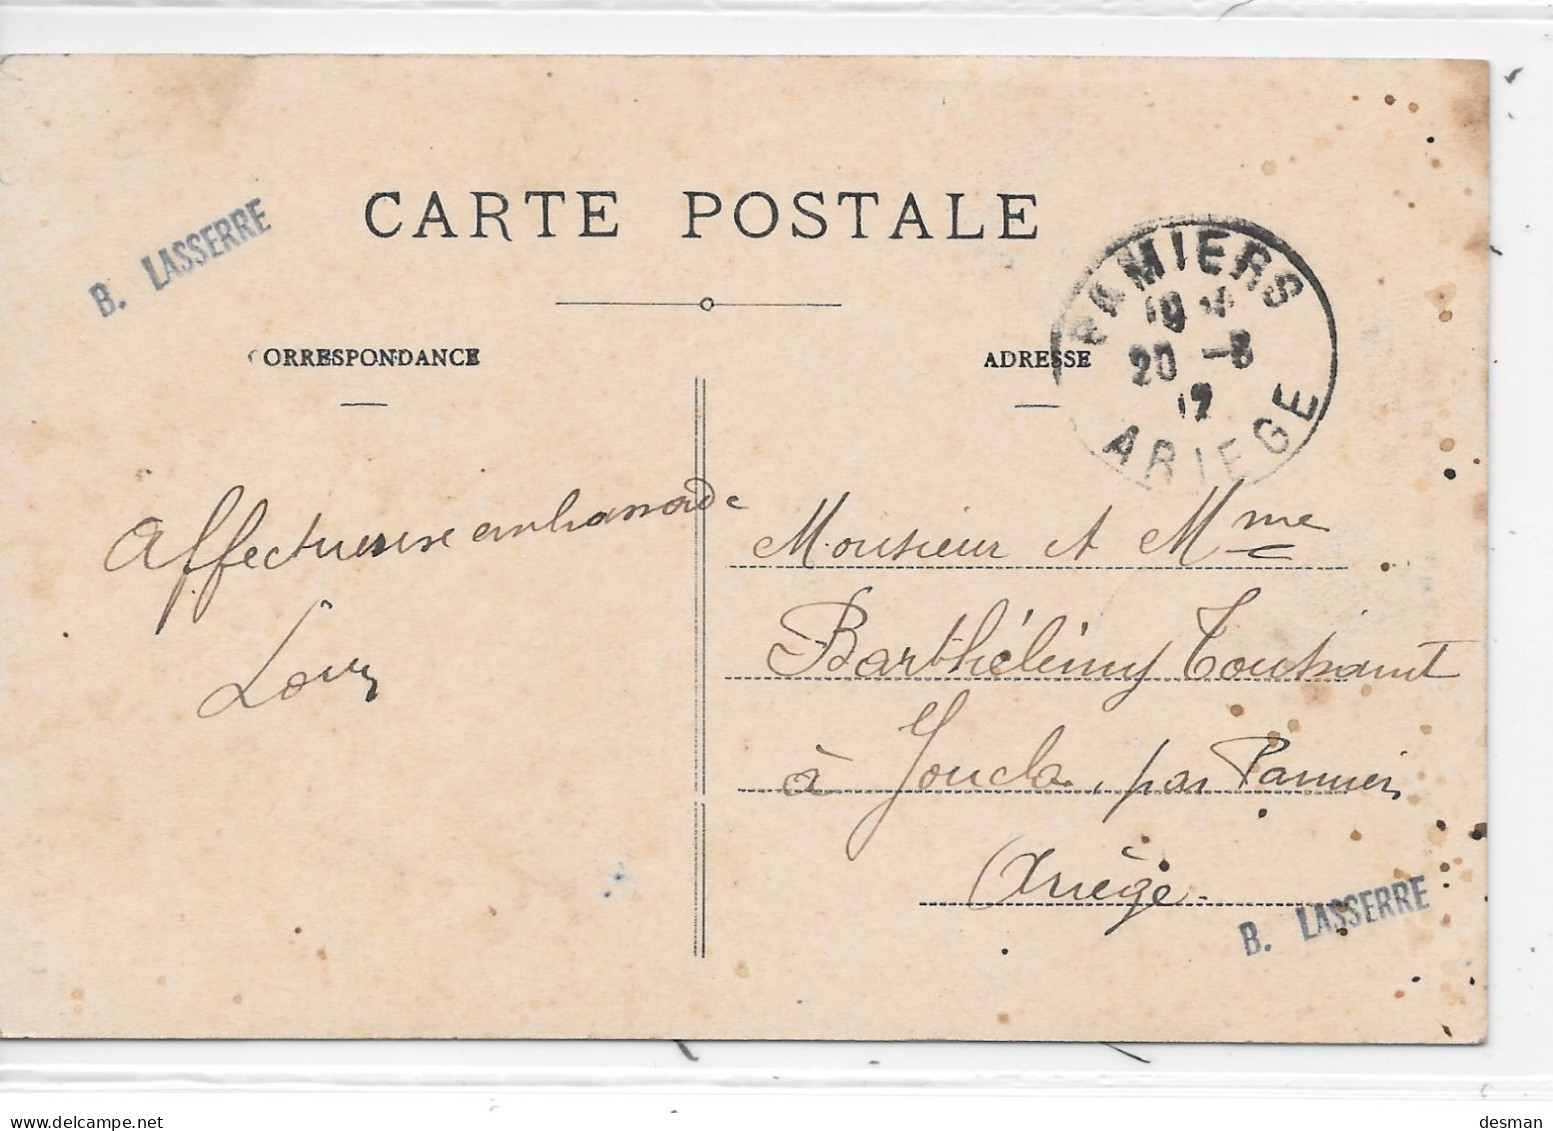 CARTE POSTALE
B. LASSERRE
CORRESPONDANCE
ADRESSE
PAMIERS
20 -8
12
ARIEGE
Affectueuse embrassade
Louis
Monsieur et Mme
Barthélémy Toussaint
à Joucla, par Pamiers
Ariège.
B. LASSERRE
https://www.delcampe.net
desman